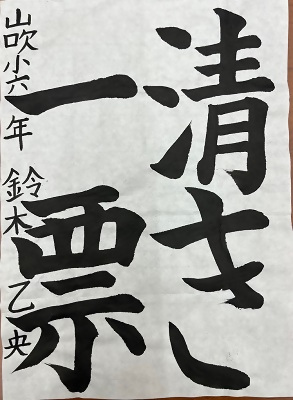 清き
一票
山吹小六年 鈴木 乙央